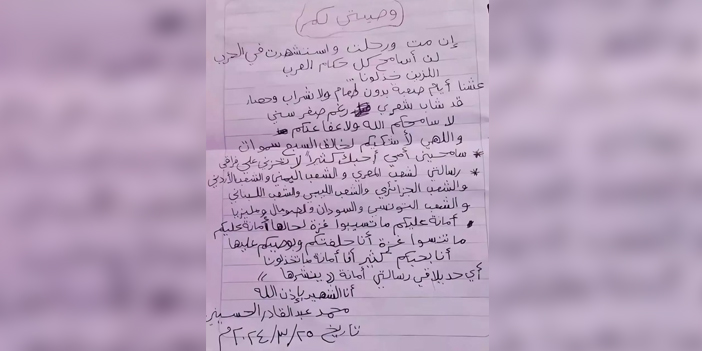 وصيتي لكم
إن مت ورحلت واستشهدت في الحرب
لن أسامح كل حكام العرب
اللذين خذلونا
عشنا أيام صعبة بدون طعام ولا شراب وحصار
قد شاب شعري رغم صغر سني
لا سامحكم الله ولا عفا عنكم
واللهي لأشكيكم لخالق السبع سموات
* سامحيني أمي أحبك كثيراً لا تحزني علي فراقي
* رسالتي لشعب المصري و الشعب اليمني والشعب الأردني
والشعب الجزائري والشعب الليبي ولشعب اللبناني
و الشعب التونسي والسودان و لصومال و مليزيا
• أمانة عليكم ما تسيبوا غزة لحالها أمانة عليكم
ما تنسوا غزة أنا حلفتكم وبوصيكم عليها
أنا بحبكم كثير أنا أمانة ما تخذلونا
أي حد يلاقي رسالتي أمانة (( ينشرها ))
أنا الشهيد بإذن الله
محمد عبد القادر الحسيني
تاريخ ٢٠٢٤/٣/٢٥م